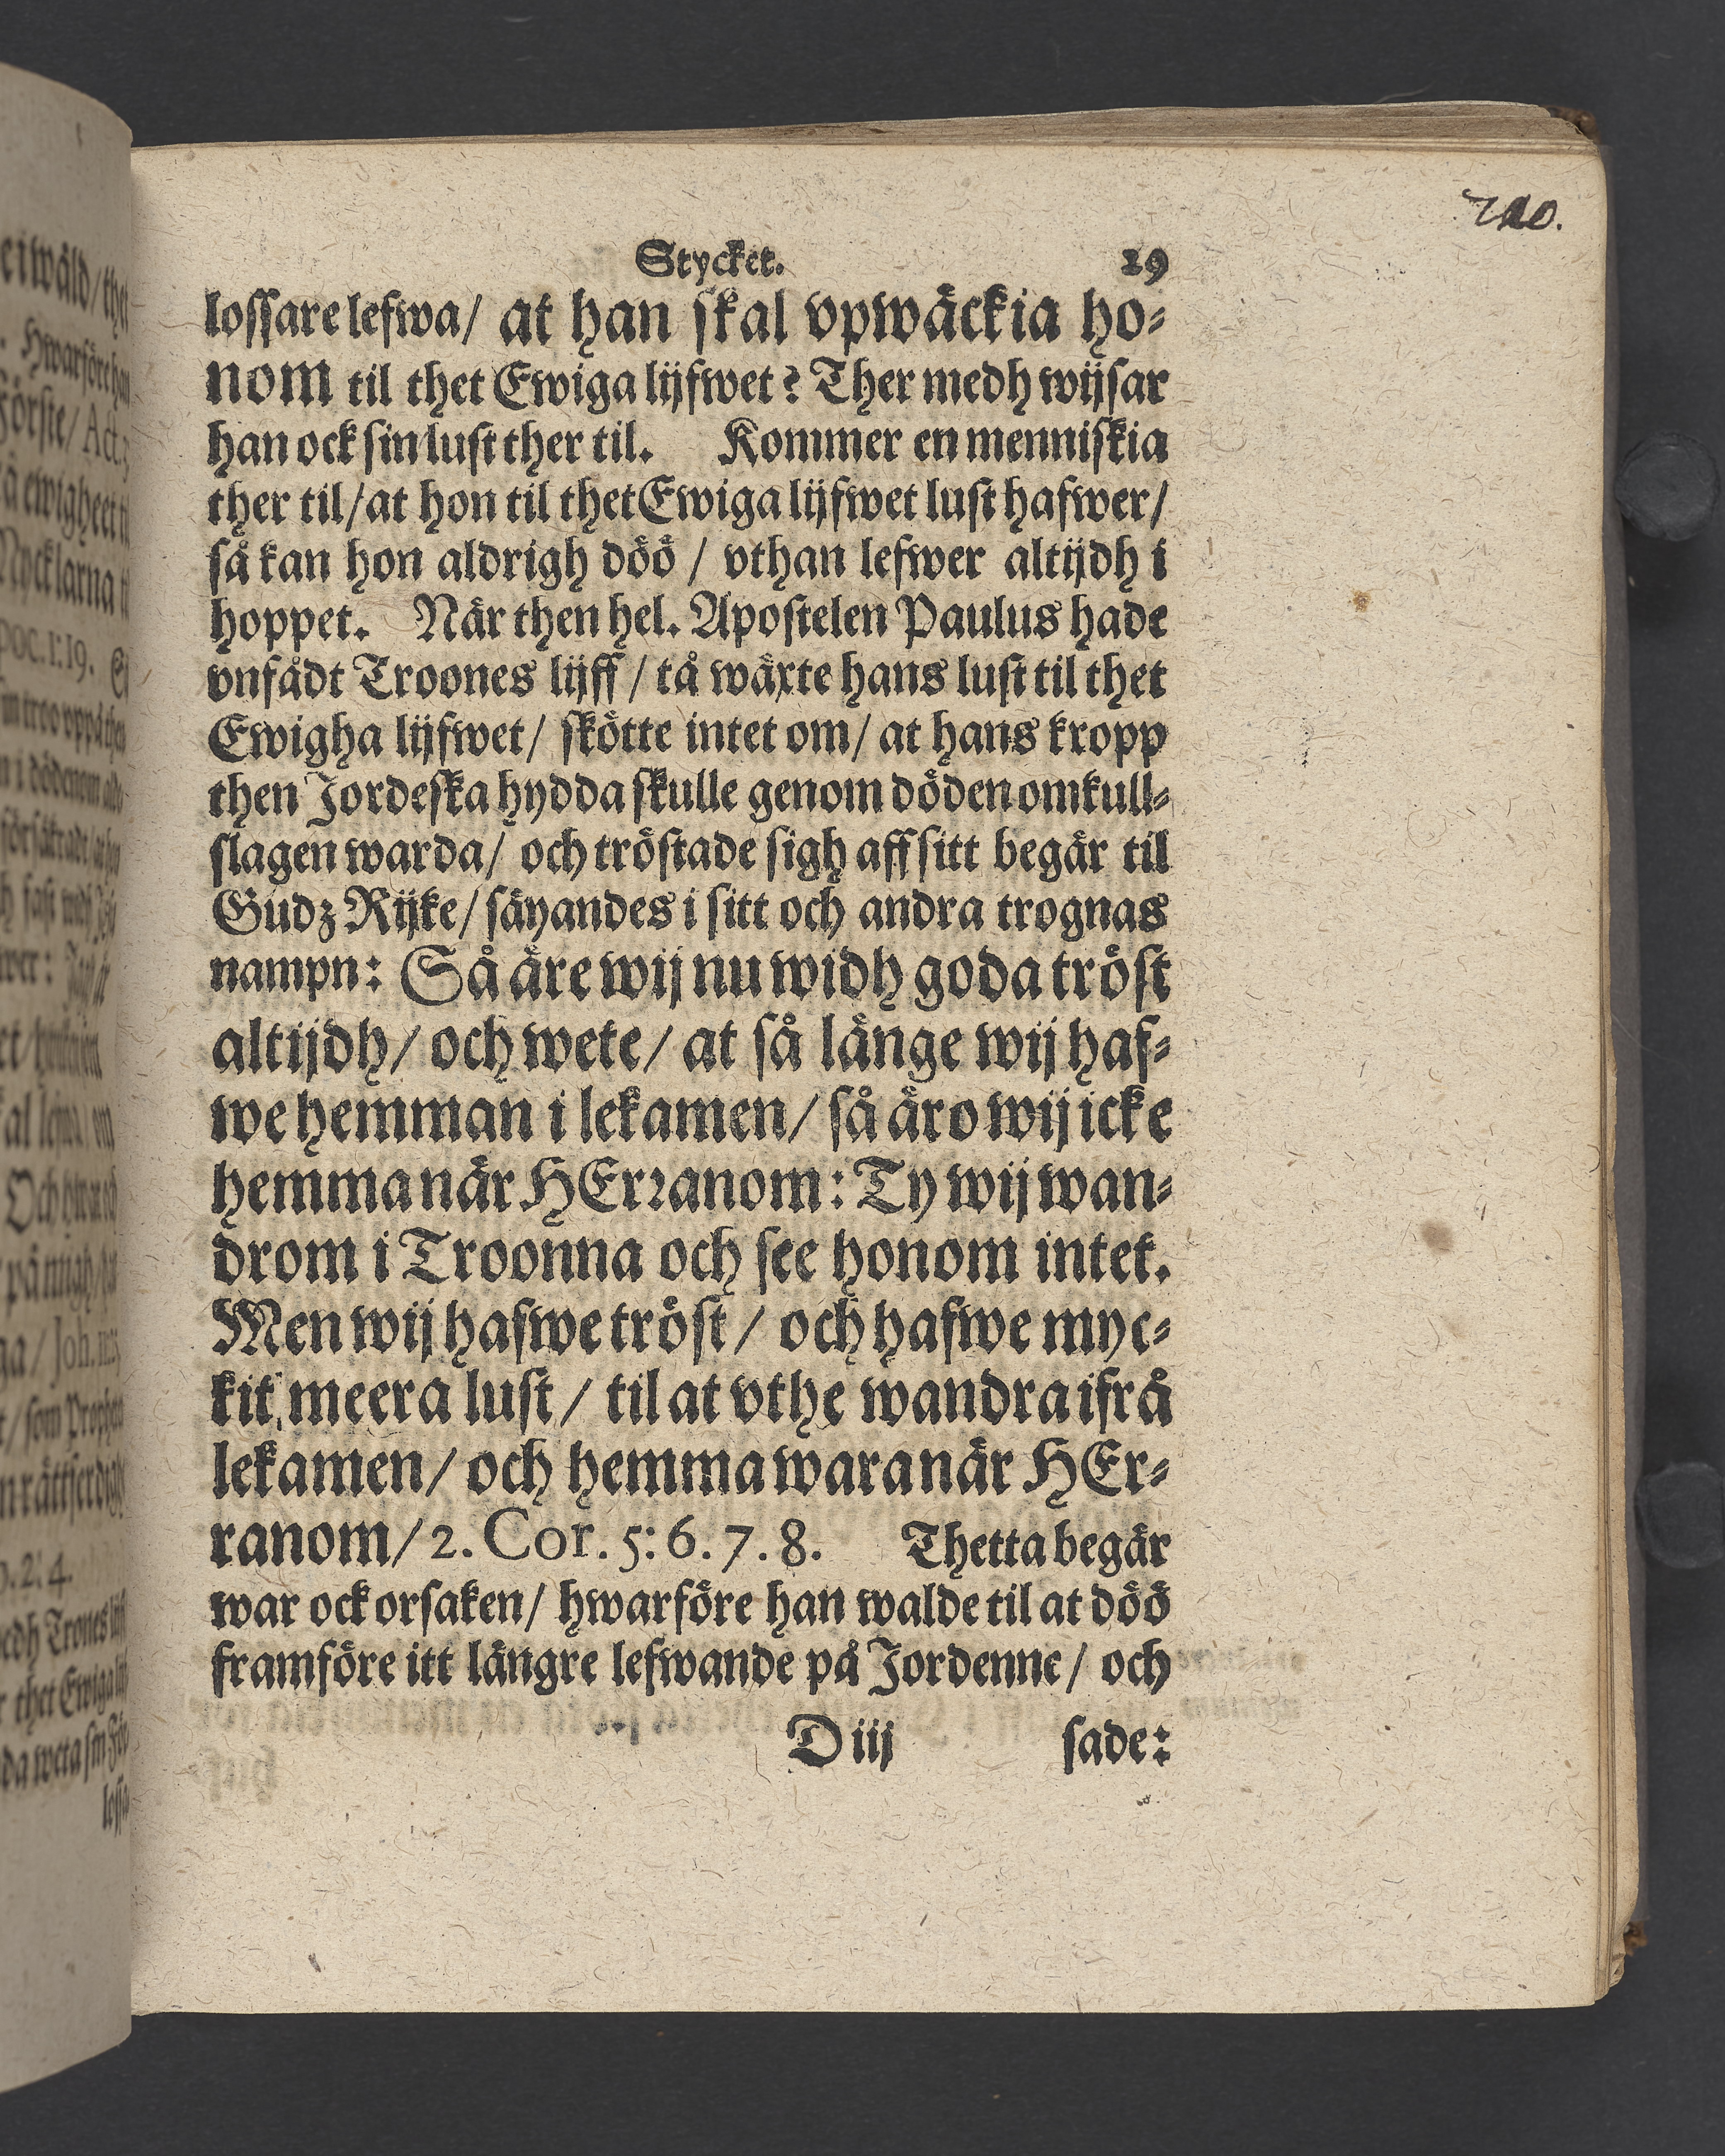 Stycket. 29
lossare lefwa/ at han skal vpwäckia ho-
nom til thet Ewiga lijfwet? Ther medh wijsar
han ock sin lust ther til. Kommer en menniskia
ther til/ at hon til thet Ewiga lijfwet lust hafwer/
så kan hon aldrigh döö / vthan lefwer altijdh i
hoppet. När then hel. Apostelen Paulus hade
vnfådt Troones lijff / tå wäxte hans lust til thet
Ewigha lijfwet/ skötte intet om/ at hans kropp
then Jordeska hydda skulle genom döden omkull-
slagen warda/ och tröstade sigh aff sitt begär til
Gudz Rijke/ säyandes i sitt och andra trognas
nampn: Så äre wij nu widh goda tröst
altijdh/ och wete/ at så länge wij haf-
we hemman i lekamen/ så äro wij icke
hemma när HErranom: Ty wij wan-
drom i Troonna och see honom intet.
Men wij hafwe tröst/ och hafwe myc-
kit meera lust/ til at vthe wandra ifrå
lekamen/ och hemma wara när HEr-
ranom/ 2. Cor. 5: 6. 7. 8. Thetta begär
war ock orsaken/ hwarföre han walde til at döö
framföre itt längre lefwande på Jordenne/ och
D iij sade: